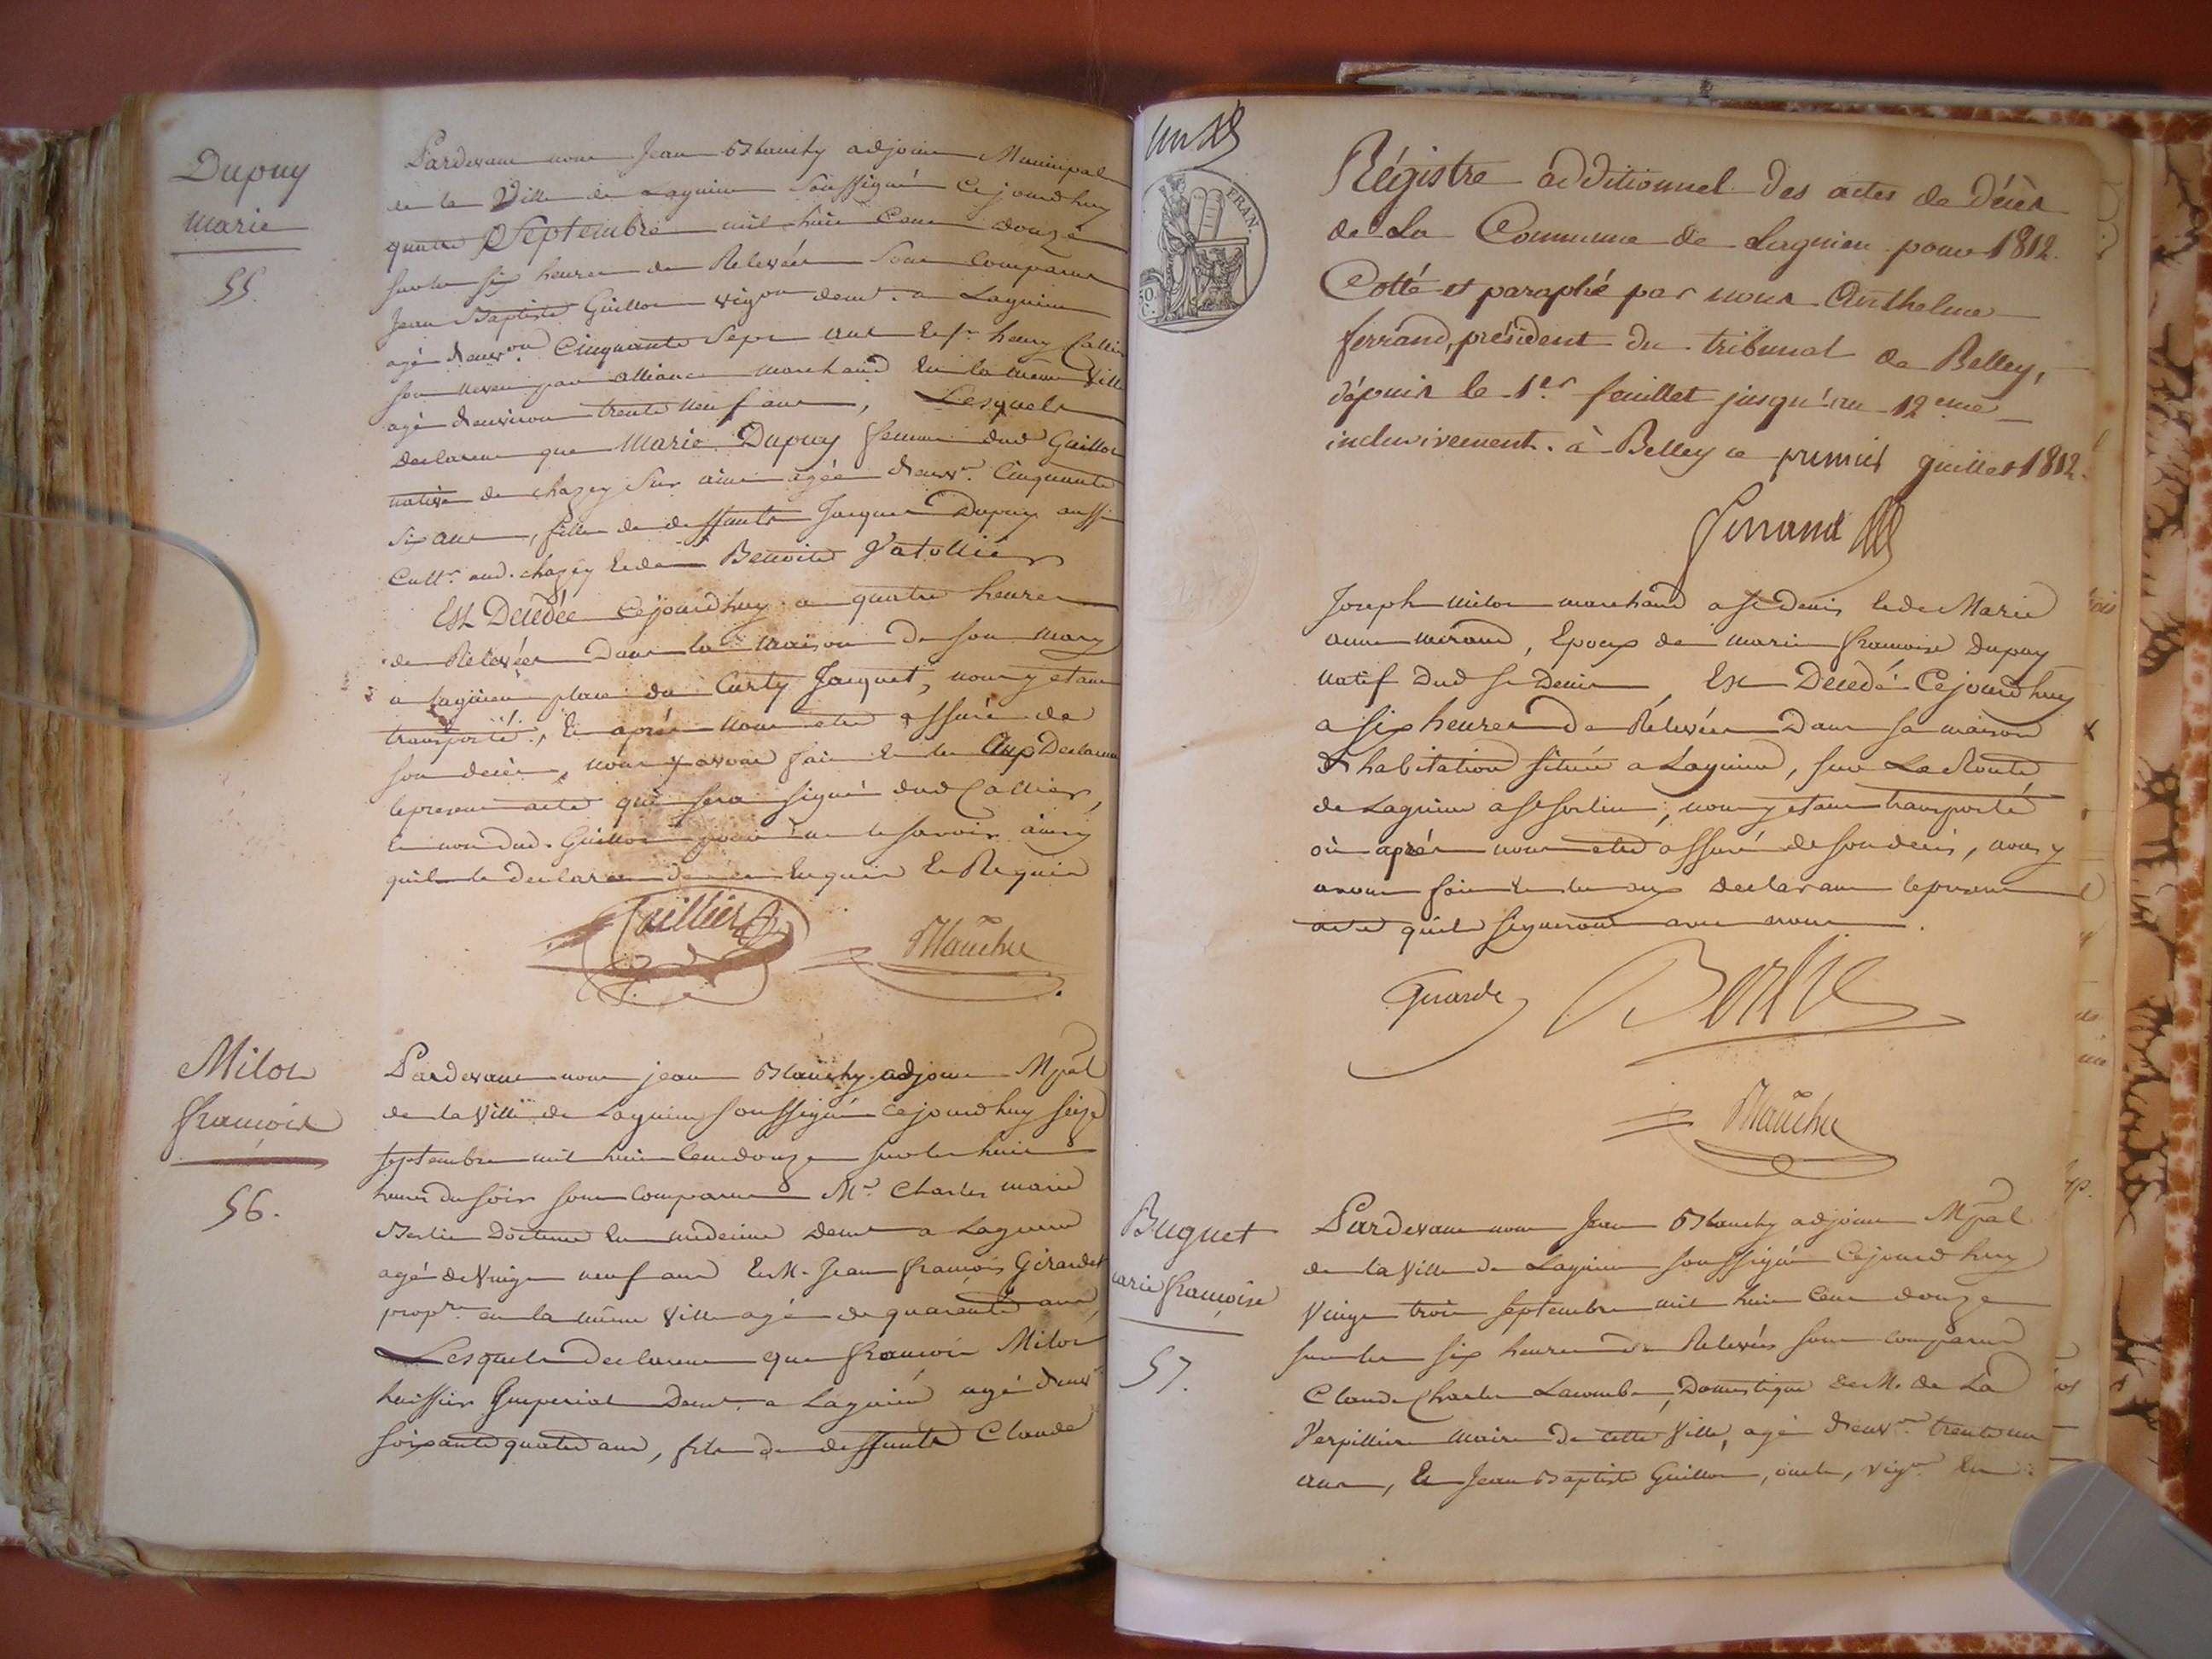 Dupuy
marie
55.
Pardevant nous Jean Blanchy adjoint Municipal
de la Ville de Lagnieu Soussigné Cejourdhuy
quatre Septembre mil huit Cent douze
sur les six heures de Relevée Sont Comparus
Jean Baptiste Guillon vigon demt. a Lagnieu
agé denvon. Cinquante Sept ans Et sr. henry Callier
son neveu par alliance marchand En la meme Ville
agé denviron trente neuf ans, Lesquels
Declarent que Marie Dupuy femme dud Guillon
native de chazey Sur ain agée denvn. Cinquante
six ans, fille de deffunts Jacques Dupuy aussi
Cultr. aud. chazey Et de Benoite Vatollier
Est Decedée Cejourdhuy a quatre heures
de Relevée Dans la maison de son mary
a Lagnieu place du Curty Jacquet, nous y etant
transporté, Et aprés nous etre assuré de
son decès, nous y avons fait Et lu Aux Declarans
le present acte qui sera signé dud Callier,
Et non dud. Guillon pour ne le savoir ainsy
quil le declare de ce Enquis Et Requis
Caillier
Blanchy
Milon
françois
56.
Pardevant nous jean Blanchy adjoint Mpal
de la Ville de Lagnieu soussigné cejourdhuy seize
septembre mil huit Cent douze sur les huit
heures du soir sont Comparus Mr. Charles marie
Berlie Docteur En medecine demt a Lagnieu
agé de Vingt neuf ans Et M. Jean françois Girardet
propre. en la même Ville agé de quarante ans,
Lesquels declarent que françois Milon
huissier Imperial Demt. a Lagnieu agé denvn
soixante quatre ans, fils de deffunts Claude
un
FRAN.
50
C.
Régistre additionnel des actes de décès
de La Commune de Lagnieu pour 1812.
Cotté et paraphé par nous Anthelme
ferrand, président du tribunal de Belley,
dépuis le 1er feuillet jusqu'au 12eme
inclusivement. à Belley ce premier juillet 1812.
ferrand
Joseph milon marchand a St Denis Et de Marie
anne mirand, Epoux de marie françoise Dupuy
natif Dud St Denis, Est Decedé Cejourdhuy
a six heures de Relevée Dans sa maison
d habitation située a Lagnieu, sur La Route
de Lagnieu a St Sorlin; nous y etant transporté
où aprés nous etre assuré de son decès, nous y
avons fait Et lu aux declarans le present
acte quils signeront avec nous.
Girardet
Berlie
Blanchy
Buguet
marie françoise
57.
Pardevant nous Jean Blanchy adjoint Mpal
de la Ville de Lagnieu soussigné Cejourdhuy
Vingt trois septembre mil huit Cent douze
sur les six heures de Relevée sont comparus
Claude Charles Lacombe, Domestique de M. de La
Verpilliere maire de cette Ville, agé denvn. trente un
ans, Et Jean Baptiste Guillon, oncle, vign. En